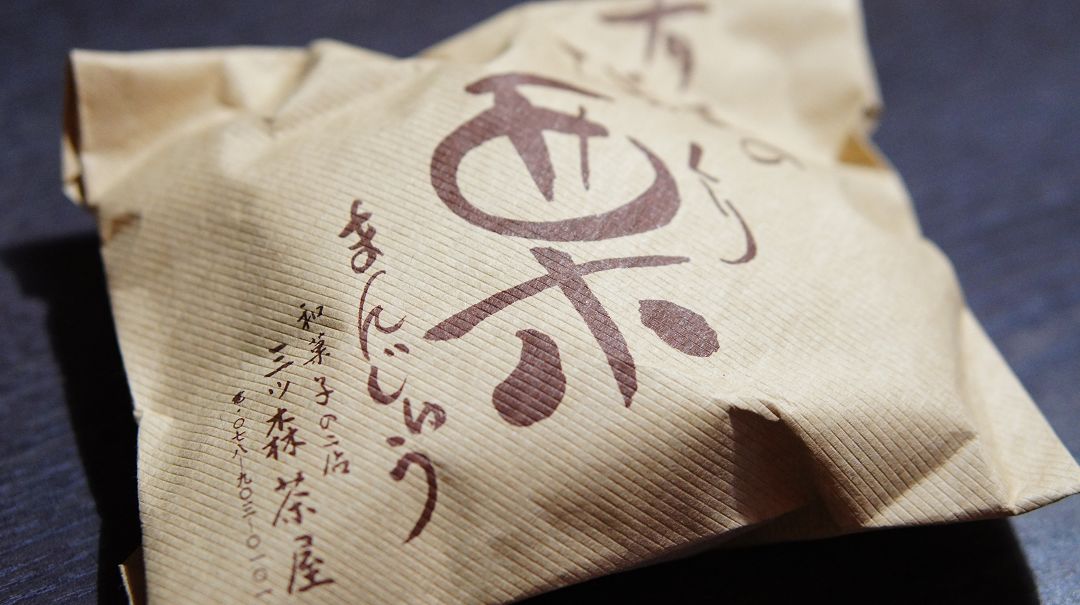 くり
栗
まんじゅう
和菓子の店
三ツ森茶屋
☎・〇七八-九〇三-〇一〇一